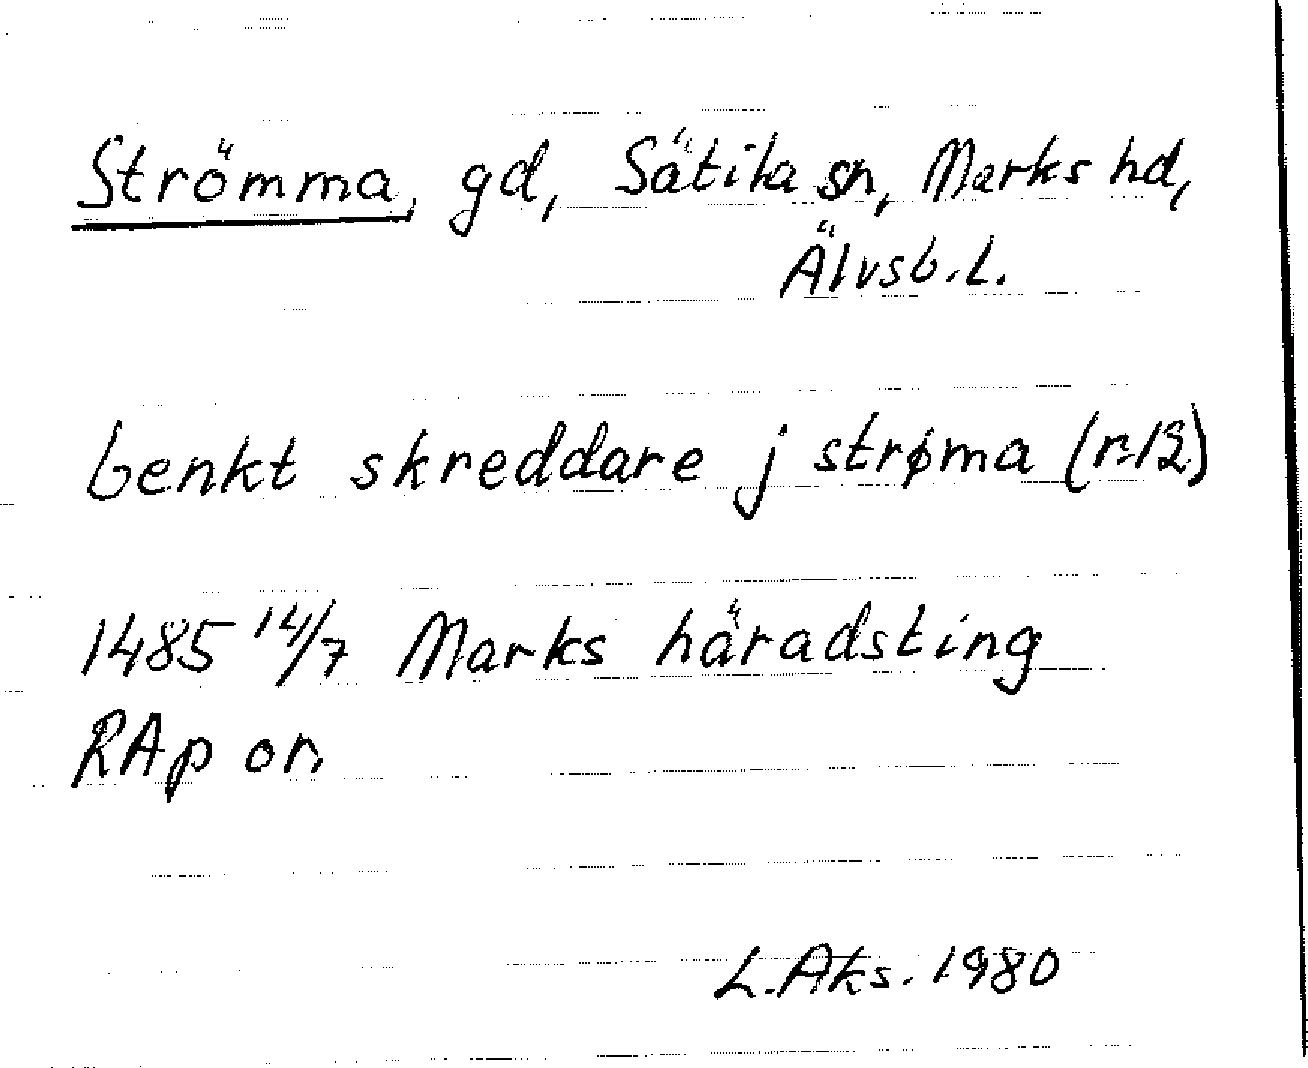 Strömma, gd, Sätila sn, Marks hd,
Älvsb. L.
benkt skreddare j strøma (r. 12)
1485 14/7 Marks häradsting
RAp or.
L. Aks. 1980